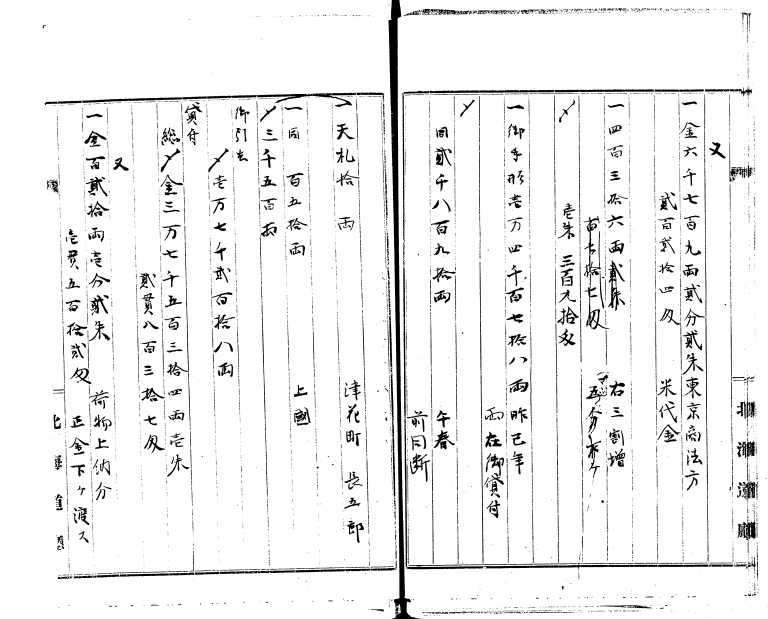 又
一金六千七百九両貳分貳朱東京商法方
貳百貳拾四匁 米代金
一四百三拾六両貳朱 右三割増
百七拾七匁
壱朱 三百九拾匁
〆
一御手形壱万四千百七拾八両昨巳年
両在御貸付
同貳千八百九拾両 午春
前同断
〆
一天札拾両 津花町 長五郎
一同 百五拾両 上國
〆三千五百両
御引去
〆壱万七千貳百拾八両
貸付
総〆金三万七千五百三拾四両壱朱
貳貫八百三拾七匁
又
一金百貳拾両壱分貳朱 荷物上納分
壱貫五百拾貳匁 正金下ケ渡ス
北海道廳
北海道